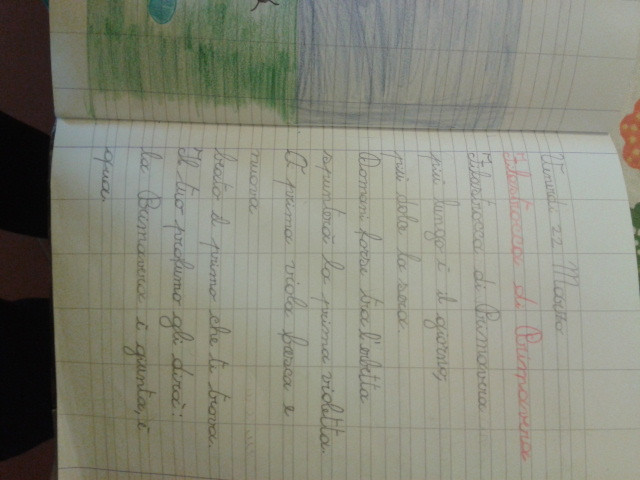 Venerdì 22 Marzo
Filastrocca di Primavera
Filastrocca di Primavera
più lungo è il giorno,
più dolce la sera.
Domani forse tra l'erbetta
spunterà la prima violetta.
O prima viola fresca e
nuova
beato il primo che ti trova.
Il tuo profumo gli dirà:
la Primavera è giunta, è
qua.